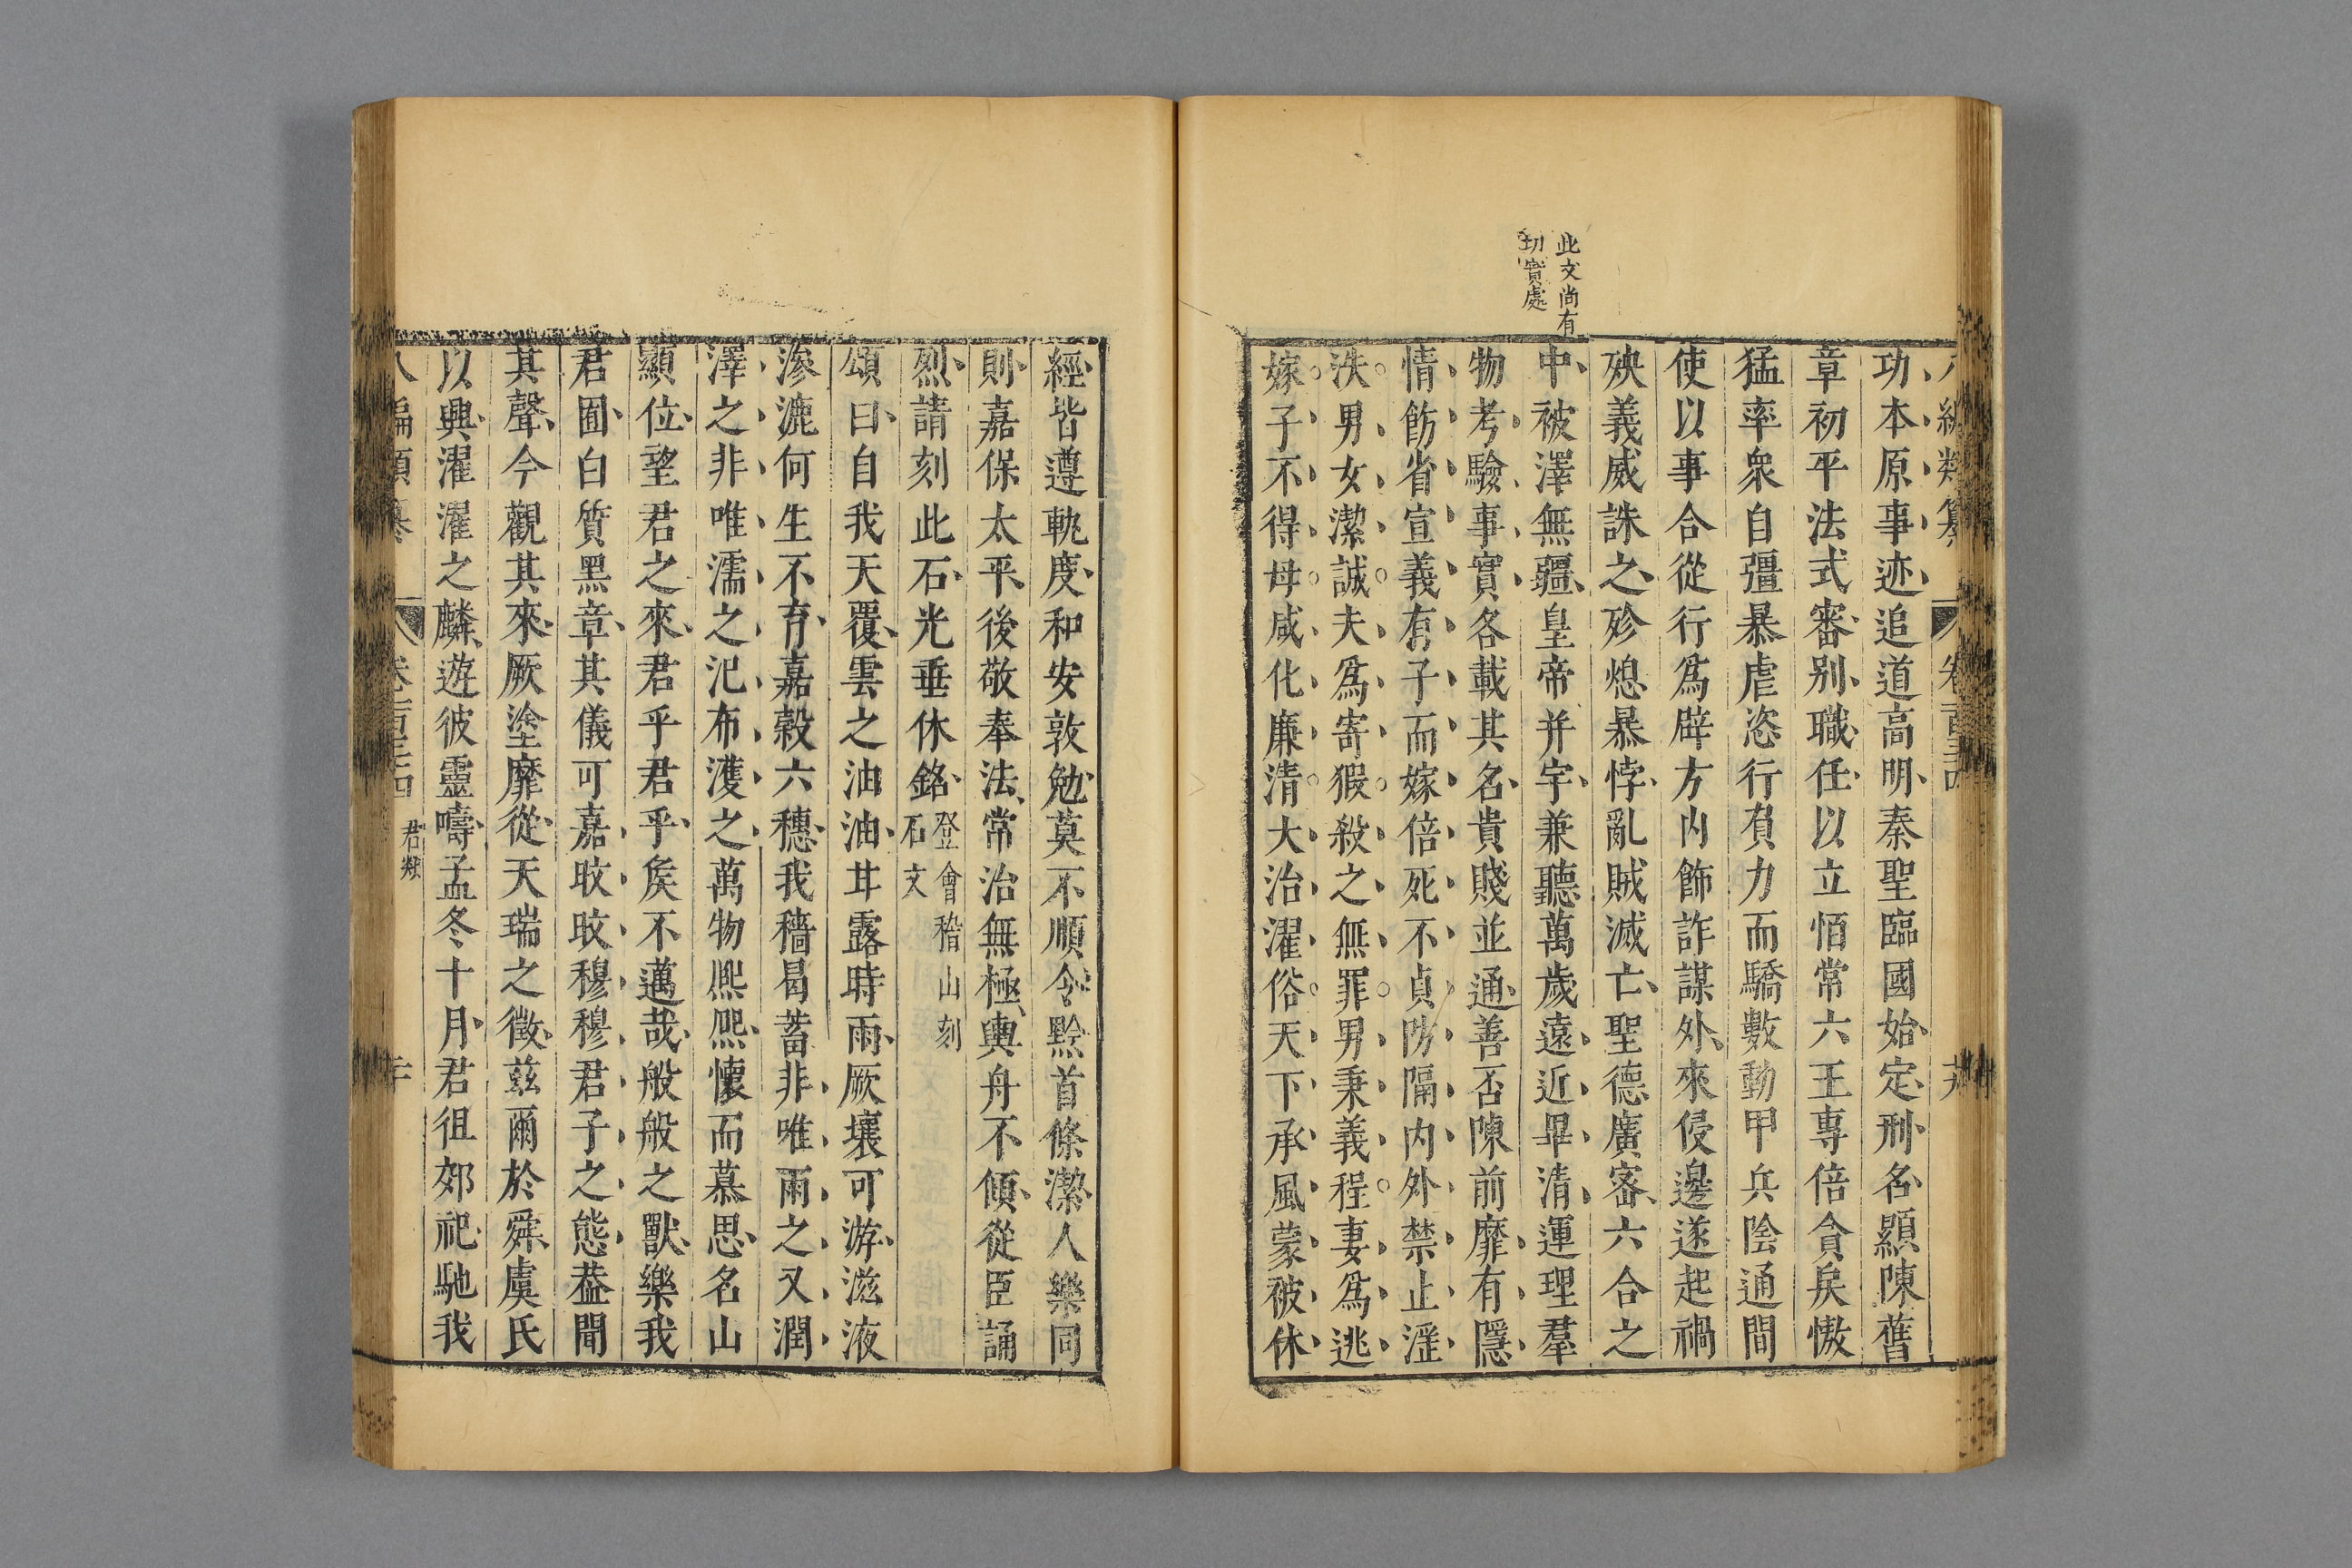 八編類纂 卷二百三十四 十九
功本原事迹追道高明秦聖臨國始定刑名顯陳舊
章初平法式審别職任以立恒常六王專倍貪戾慠
猛率衆自彊暴虐恣行負力而驕數動甲兵陰通間
使以事合從行爲辟方内飾詐謀外來侵邊遂起禍
殃義威誅之殄熄暴悖亂賊滅亡聖德廣宻六合之
此文尚有
切實處
中被澤無疆皇帝并宇兼聽萬歲遠近畢清運理羣
物考驗事實各載其名貴賤並通善否陳前靡有隱
情飭省宣義有子而嫁倍死不貞防隔内外禁止淫
泆男女潔誠夫爲寄猳殺之無罪男秉義程妻爲逃
嫁子不得母咸化廉清大治濯俗天下承風蒙被休
經皆遵軌度和安敦勉莫不順令黔首脩潔人樂同
則嘉保太平後敬奉法常治無極輿舟不傾從臣誦
烈請刻此石光垂休銘登會稽山刻
石文
頌曰自我天覆雲之油油甘露時雨厥壤可游滋液
滲漉何生不育嘉穀六穗我穡曷蓄非唯雨之又潤
澤之非唯濡之汜布濩之萬物熈熈懷而慕思名山
顯位望君之來君乎君乎矦不邁哉般般之獸樂我
君囿白質黑章其儀可嘉旼旼穆穆君子之態葢聞
其聲今觀其來厥塗靡從天瑞之徵茲爾於舜虞氏
以興濯濯之麟遊彼靈疇孟冬十月君徂郊祀馳我
八編類纂 卷二百三十四 君類 二十